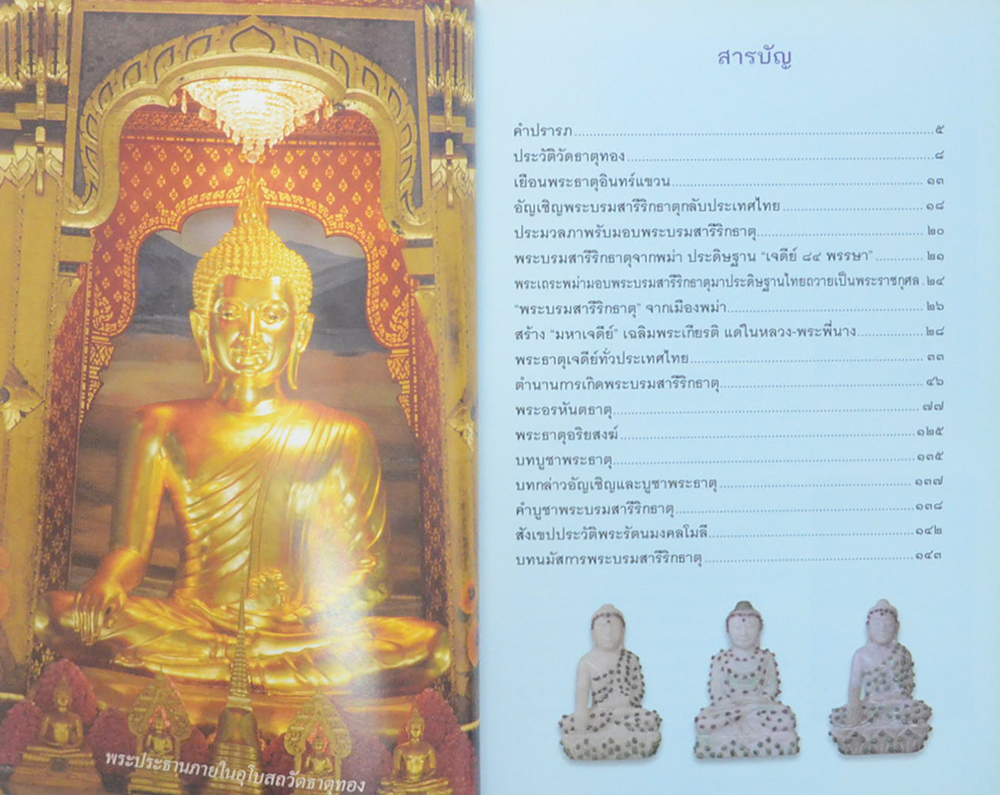 พระประธานภายในอุโบสถวัดธาตุทอง
สารบัญ
คำปรารภ ๕
ประวัติวัดธาตุทอง ๘
เยือนพระธาตุอินทร์แขวน ๑๓
อัญเชิญพระบรมสารีริกธาตุกลับประเทศไทย ๑๘
ประมวลภาพรับมอบพระบรมสารีริกธาตุ ๒๐
พระบรมสารีริกธาตุจากพม่า ประดิษฐาน “เจดีย์ ๘๔ พรรษา” ๒๑
พระเถระพม่ามอบพระบรมสารีริกธาตุมาประดิษฐานไทยถวายเป็นพระราชกุศล ๒๔
“พระบรมสารีริกธาตุ” จากเมืองพม่า ๒๖
สร้าง “มหาเจดีย์” เฉลิมพระเกียรติ แด่ในหลวง-พระพี่นาง ๒๘
พระธาตุเจดีย์ทั่วประเทศไทย ๓๓
ตำนานการเกิดพระบรมสารีริกธาตุ ๔๖
พระอรหันตธาตุ ๗๗
พระธาตุอริยสงฆ์ ๑๒๕
บทบูชาพระธาตุ ๑๓๕
บทกล่าวอัญเชิญและบูชาพระธาตุ ๑๓๗
คำบูชาพระบรมสารีริกธาตุ ๑๓๘
สังเขปประวัติพระรัตนมงคลโมลี ๑๔๒
บทนมัสการพระบรมสารีริกธาตุ ๑๔๓